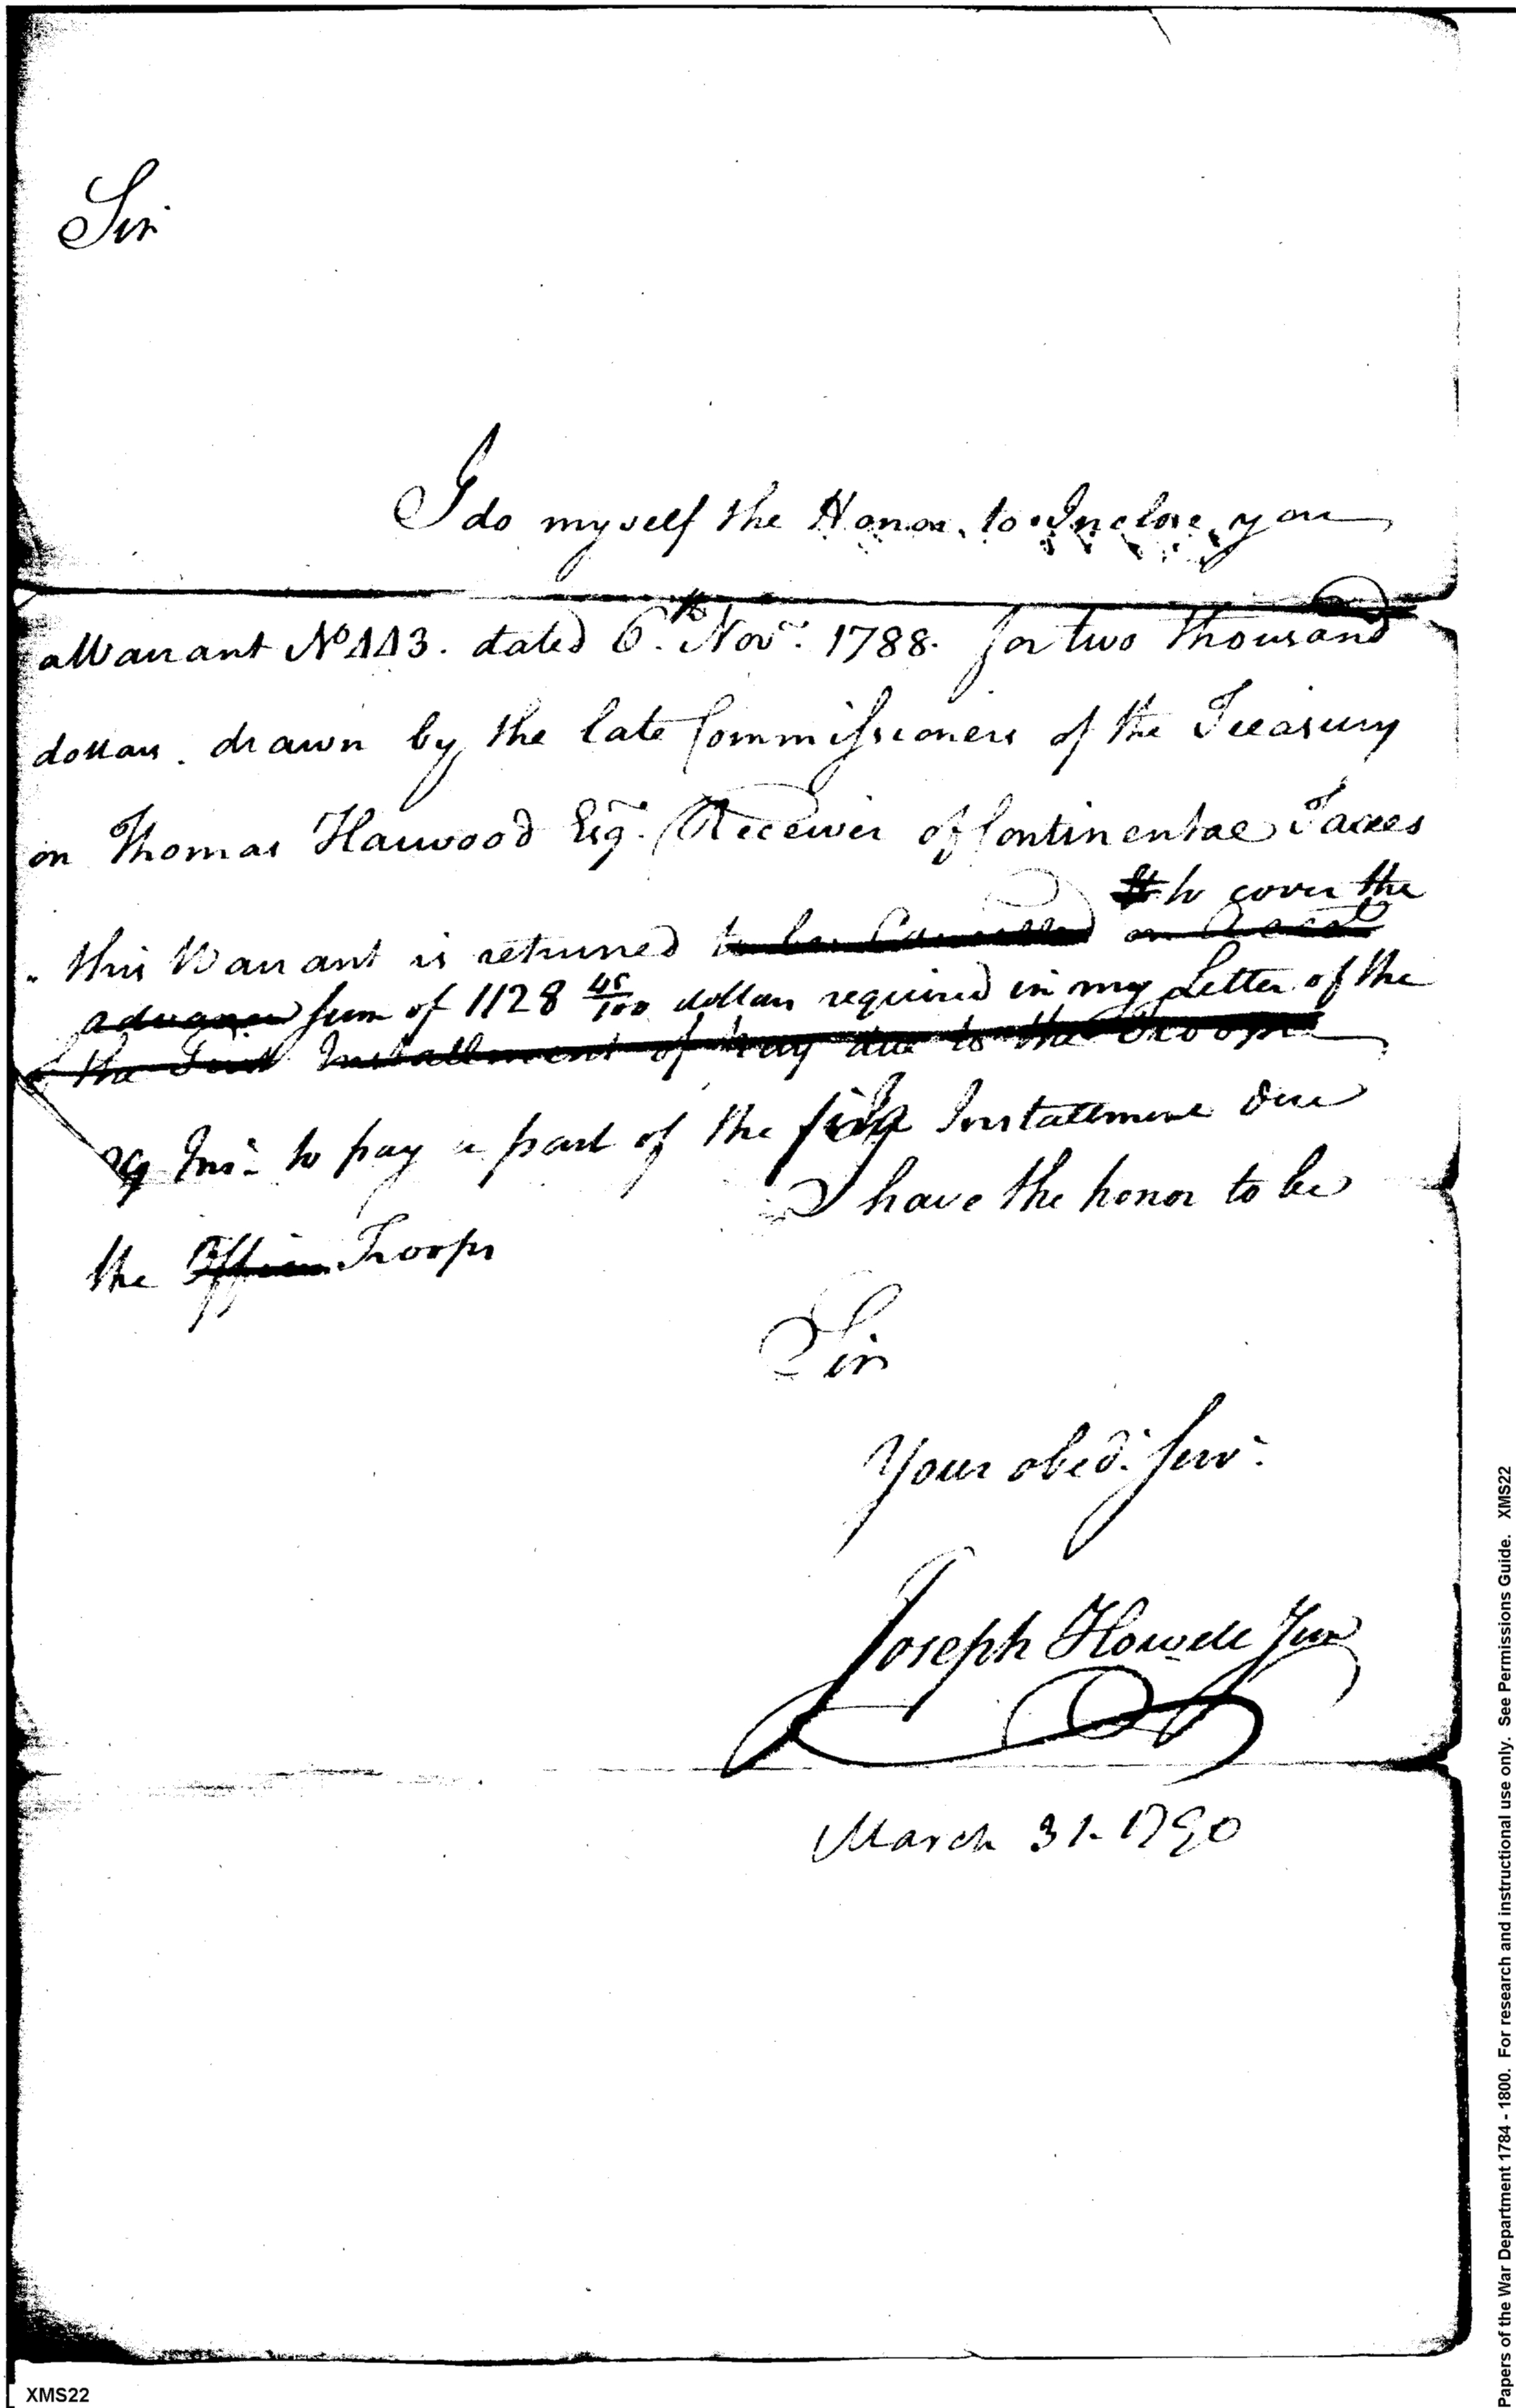 Sir
I do myself the Honor to Inclose you
a Warrant No 113. dated 6th Novr. 1788. for two thousand
dollars. drawn by the late Commissioners of the Treasury
on Thomas Harwood Esqr. Receiver of Continental Taxes
to cover the
this Warrant is returned to be Cancelled on Acct
advance sum of 1128 45/100 dollars required in my Letter of the
of the First Installment of pay due to the Troops
29 Inst. to pay a part of the first Installment due
I have the honor to be
the Officers Troops
Sir
Your obedt. Servt.
Joseph Howell Junr
March 31. 1790
XMS22
Papers of the War Department 1784 - 1800. For research and instructional use only. See Permissions Guide. XMS22